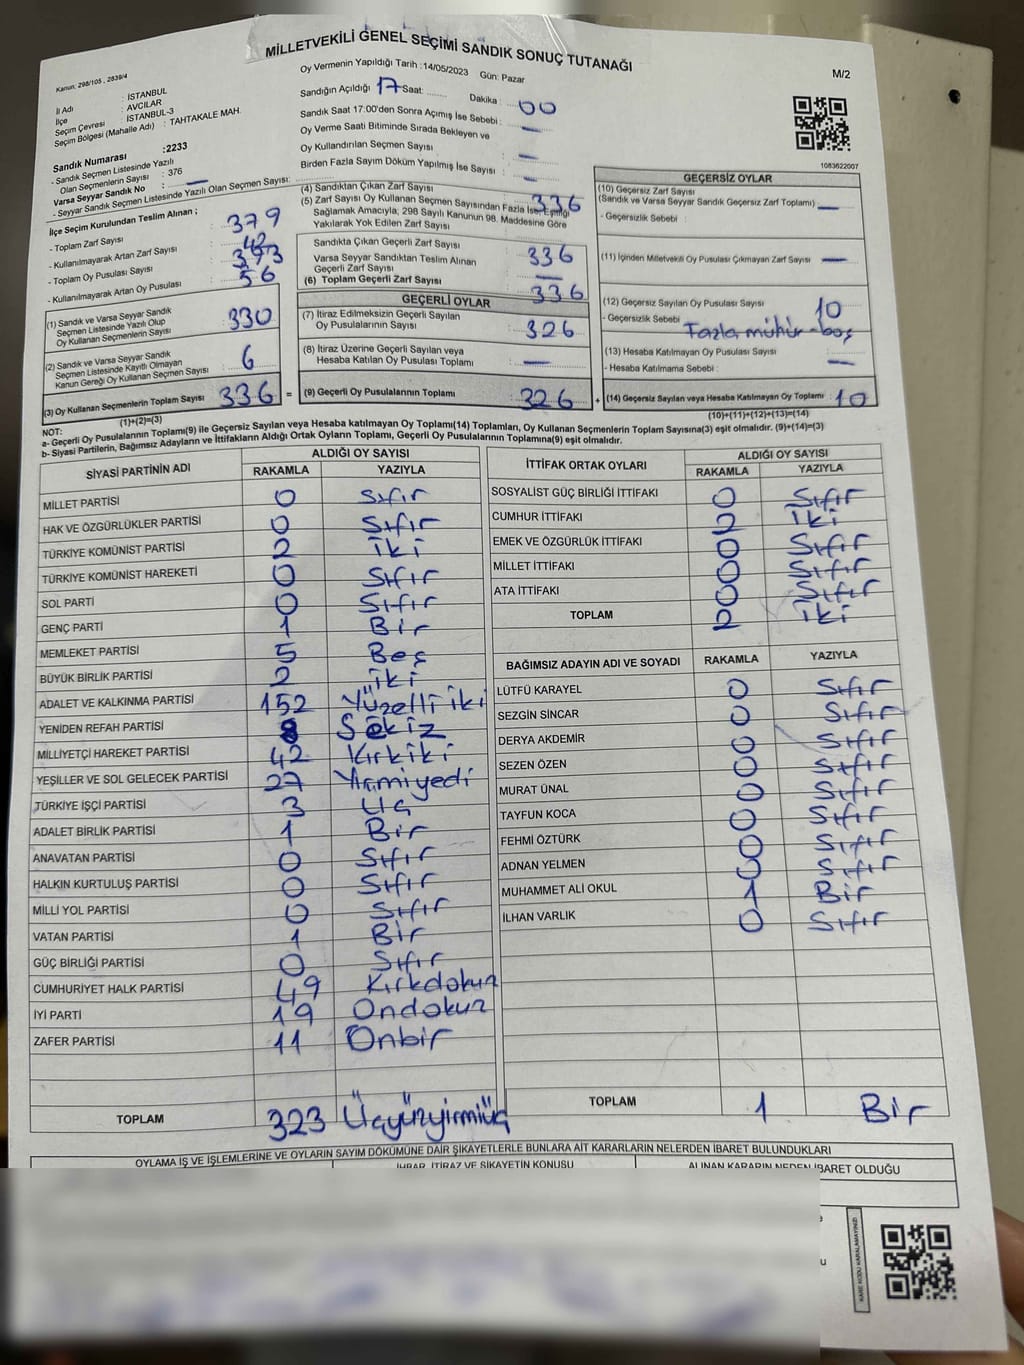 MİLLETVEKİLİ GENEL SEÇİMİ SANDIK SONUÇ TUTANAĞI
M/2
Kanun: 298/105 , 2839/4
İl Adı : İSTANBUL
İlçe : AVCILAR
Seçim Çevresi : İSTANBUL-3
Seçim Bölgesi (Mahalle Adı) : TAHTAKALE MAH.
Sandık Numarası :2233
- Sandık Seçmen Listesinde Yazılı
Olan Seçmenlerin Sayısı : 376
Varsa Seyyar Sandık No : —
- Seyyar Sandık Listesinde Yazılı Olan Seçmen Sayısı:
Oy Vermenin Yapıldığı Tarih :14/05/2023 Gün: Pazar
Sandığın Açıldığı 17 Saat: Dakika : 00
Sandık Saat 17:00'den Sonra Açımış İse Sebebi : —
Oy Verme Saati Bitiminde Sırada Bekleyen ve
Oy Kullandırılan Seçmen Sayısı : —
Birden Fazla Sayım Döküm Yapılmış İse Sayısı : —
1083622007
İlçe Seçim Kurulundan Teslim Alınan ;
- Toplam Zarf Sayısı : 379
- Kullanılmayarak Artan Zarf Sayısı : 42
- Toplam Oy Pusulası Sayısı : 393
- Kullanılmayarak Artan Oy Pusulası : 56
(1) Sandık ve Varsa Seyyar Sandık
Seçmen Listesinde Yazılı Olup
Oy Kullanan Seçmenlerin Sayısı : 330
(2) Sandık ve Varsa Seyyar Sandık
Seçmen Listesinde Kayıtlı Olmayan
Kanun Gereği Oy Kullanan Seçmen Sayısı : 6
(3) Oy Kullanan Seçmenlerin Toplam Sayısı : 336 =
(1)+(2)=(3)
(4) Sandıktan Çıkan Zarf Sayısı : 336
(5) Zarf Sayısı Oy Kullanan Seçmen Sayısından Fazla İse, Eşitliği
Sağlamak Amacıyla, 298 Sayılı Kanunun 98. Maddesine Göre
Yakılarak Yok Edilen Zarf Sayısı :
Sandıkta Çıkan Geçerli Zarf Sayısı : 336
Varsa Seyyar Sandıktan Teslim Alınan
Geçerli Zarf Sayısı : —
(6) Toplam Geçerli Zarf Sayısı : 336
GEÇERLİ OYLAR
(7) İtiraz Edilmeksizin Geçerli Sayılan
Oy Pusulalarının Sayısı : 326
(8) İtiraz Üzerine Geçerli Sayılan veya
Hesaba Katılan Oy Pusulası Toplamı : —
(9) Geçerli Oy Pusulalarının Toplamı : 326 +
GEÇERSİZ OYLAR
(10) Geçersiz Zarf Sayısı
(Sandık ve Varsa Seyyar Sandık Geçersiz Zarf Toplamı) : —
- Geçersizlik Sebebi :
(11) İçinden Milletvekili Oy Pusulası Çıkmayan Zarf Sayısı : —
(12) Geçersiz Sayılan Oy Pusulası Sayısı : 10
- Geçersizlik Sebebi : Fazla mühür-boş
(13) Hesaba Katılmayan Oy Pusulası Sayısı : —
- Hesaba Katılmama Sebebi :
(14) Geçersiz Sayılan veya Hesaba Katılmayan Oy Toplamı : 10
(10)+(11)+(12)+(13)=(14)
NOT:
a- Geçerli Oy Pusulalarının Toplamı(9) ile Geçersiz Sayılan veya Hesaba katılmayan Oy Toplamı(14) Toplamları, Oy Kullanan Seçmenlerin Toplam Sayısına(3) eşit olmalıdır. (9)+(14)=(3)
b- Siyasi Partilerin, Bağımsız Adayların ve İttifakların Aldığı Ortak Oyların Toplamı, Geçerli Oy Pusulalarının Toplamına(9) eşit olmalıdır.
SİYASİ PARTİNİN ADI ALDIĞI OY SAYISI
RAKAMLA YAZIYLA
MİLLET PARTİSİ 0 Sıfır
HAK VE ÖZGÜRLÜKLER PARTİSİ 0 Sıfır
TÜRKİYE KOMÜNİST PARTİSİ 2 İki
TÜRKİYE KOMÜNİST HAREKETİ 0 Sıfır
SOL PARTİ 0 Sıfır
GENÇ PARTİ 1 Bir
MEMLEKET PARTİSİ 5 Beş
BÜYÜK BİRLİK PARTİSİ 2 İki
ADALET VE KALKINMA PARTİSİ 152 Yüzelliiki
YENİDEN REFAH PARTİSİ 8 Sekiz
MİLLİYETÇİ HAREKET PARTİSİ 42 Kırkiki
YEŞİLLER VE SOL GELECEK PARTİSİ 27 Yirmiyedi
TÜRKİYE İŞÇİ PARTİSİ 3 Üç
ADALET BİRLİK PARTİSİ 1 Bir
ANAVATAN PARTİSİ 0 Sıfır
HALKIN KURTULUŞ PARTİSİ 0 Sıfır
MİLLİ YOL PARTİSİ 0 Sıfır
VATAN PARTİSİ 1 Bir
GÜÇ BİRLİĞİ PARTİSİ 0 Sıfır
CUMHURİYET HALK PARTİSİ 49 Kırkdokuz
İYİ PARTİ 19 Ondokuz
ZAFER PARTİSİ 11 Onbir
TOPLAM 323 Üçyüzyirmiüç
İTTİFAK ORTAK OYLARI ALDIĞI OY SAYISI
RAKAMLA YAZIYLA
SOSYALİST GÜÇ BİRLİĞİ İTTİFAKI 0 Sıfır
CUMHUR İTTİFAKI 2 İki
EMEK VE ÖZGÜRLÜK İTTİFAKI 0 Sıfır
MİLLET İTTİFAKI 0 Sıfır
ATA İTTİFAKI 0 Sıfır
TOPLAM 2 İki
BAĞIMSIZ ADAYIN ADI VE SOYADI RAKAMLA YAZIYLA
LÜTFÜ KARAYEL 0 Sıfır
SEZGİN SİNCAR 0 Sıfır
DERYA AKDEMİR 0 Sıfır
SEZEN ÖZEN 0 Sıfır
MURAT ÜNAL 0 Sıfır
TAYFUN KOCA 0 Sıfır
FEHMİ ÖZTÜRK 0 Sıfır
ADNAN YELMEN 0 Sıfır
MUHAMMET ALİ OKUL 1 Bir
İLHAN VARLIK 0 Sıfır
TOPLAM 1 Bir
OYLAMA İŞ VE İŞLEMLERİNE VE OYLARIN SAYIM DÖKÜMÜNE DAİR ŞİKAYETLERLE BUNLARA AİT KARARLARIN NELERDEN İBARET BULUNDUKLARI
İHBAR, İTİRAZ VE ŞİKAYETİN KONUSU ALINAN KARARIN NEDEN İBARET OLDUĞU
KARE KODU KARALAMAYINIZ!